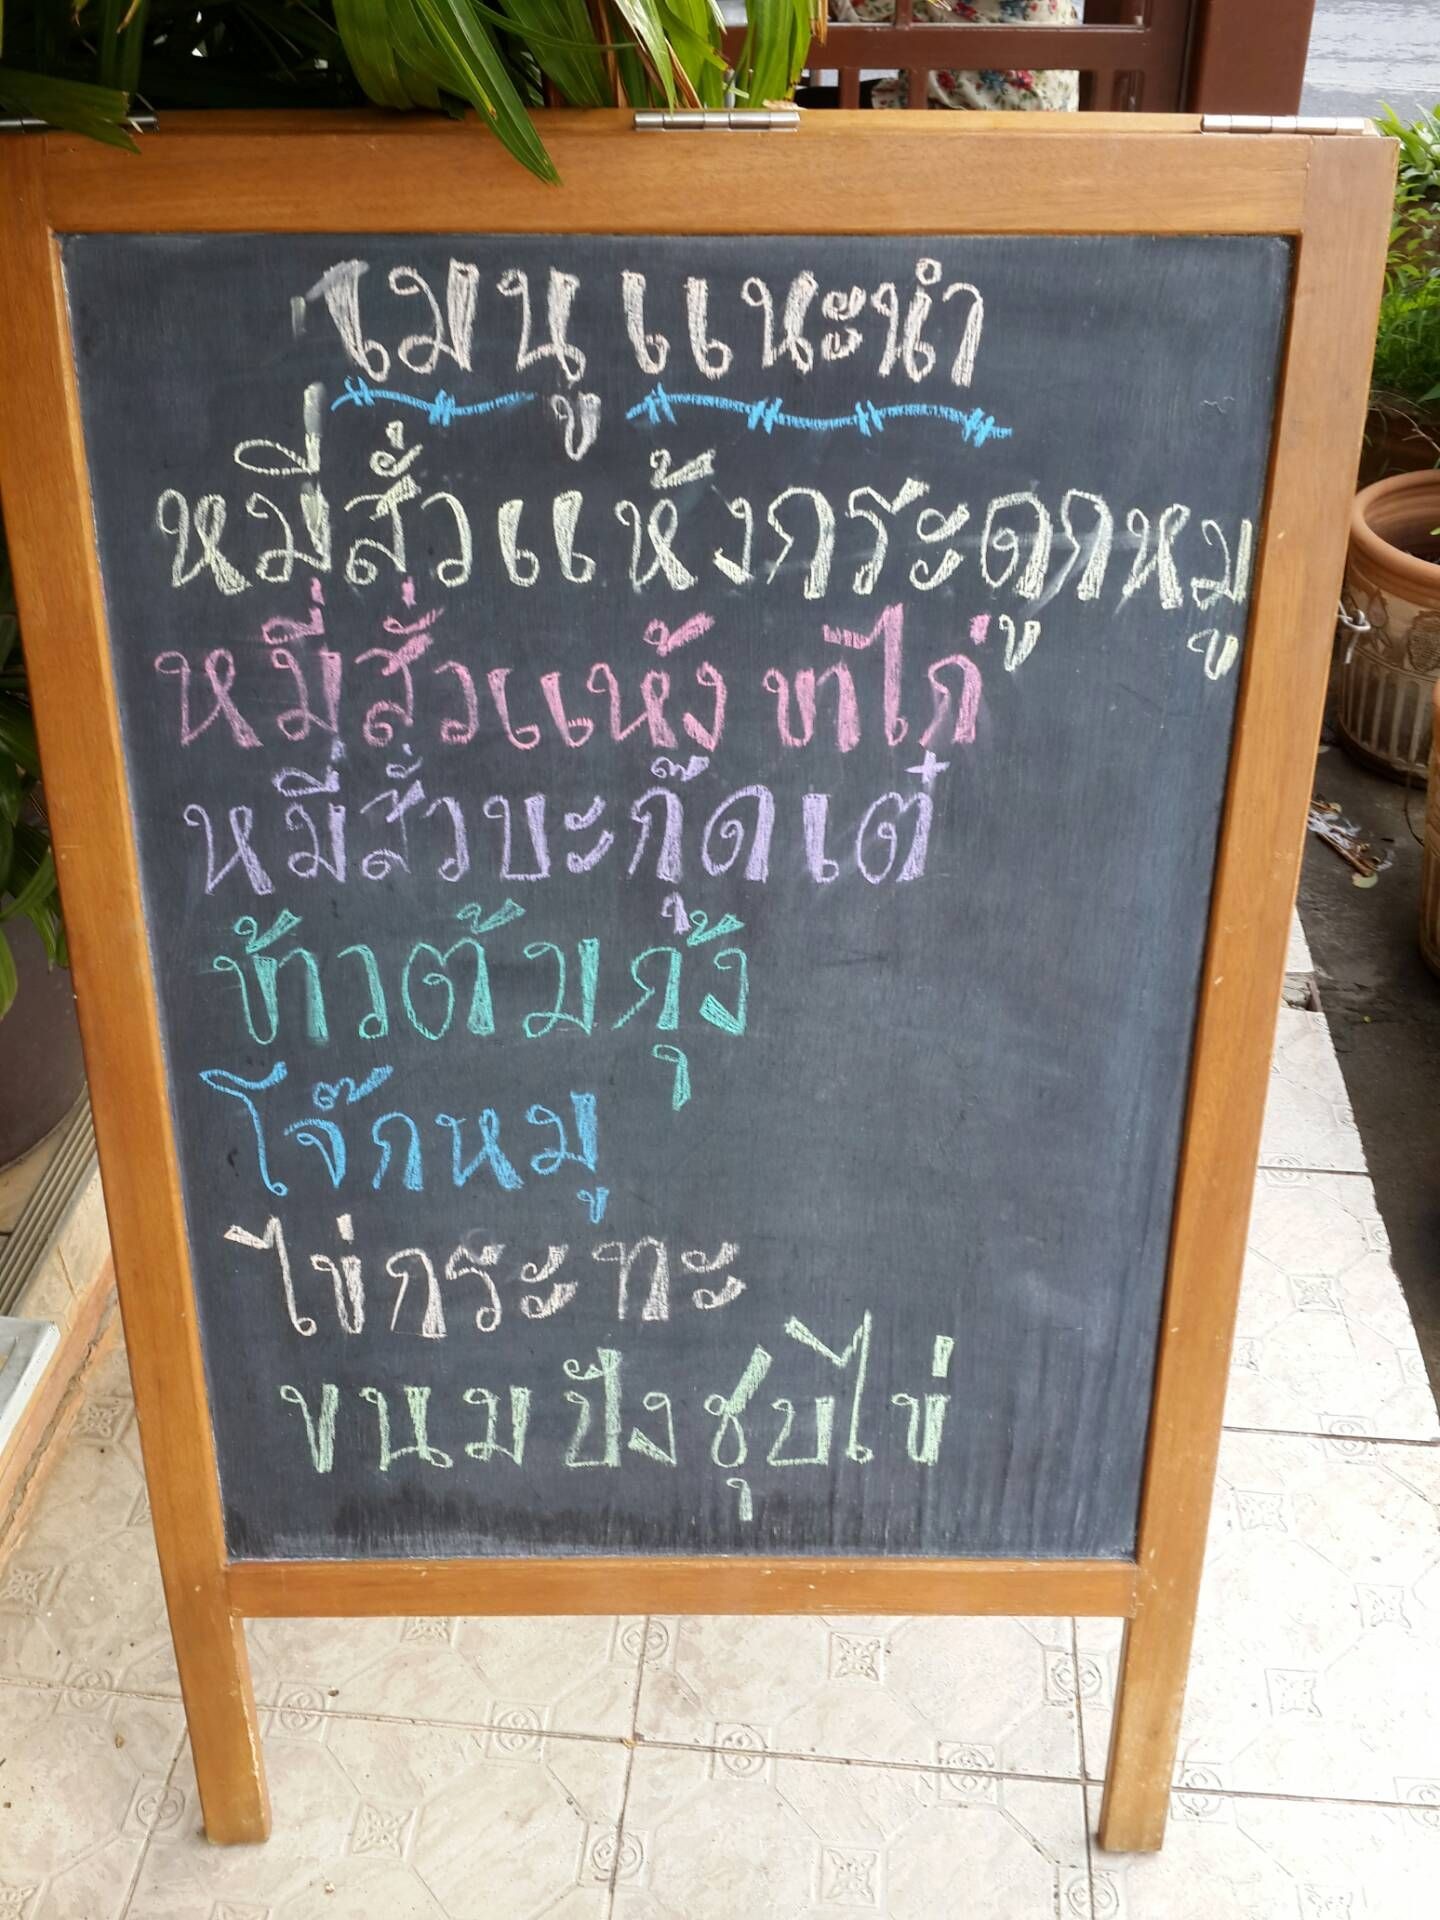 เมนูแนะนำ
หมี่สั่วแห้งกระดูกหมู
หมี่สั่วแห้งขาไก่
หมี่สั่วบะกุ๊ดเต๋
ข้าวต้มกุ้ง
โจ๊กหมู
ไข่กระทะ
ขนมปังชุบไข่